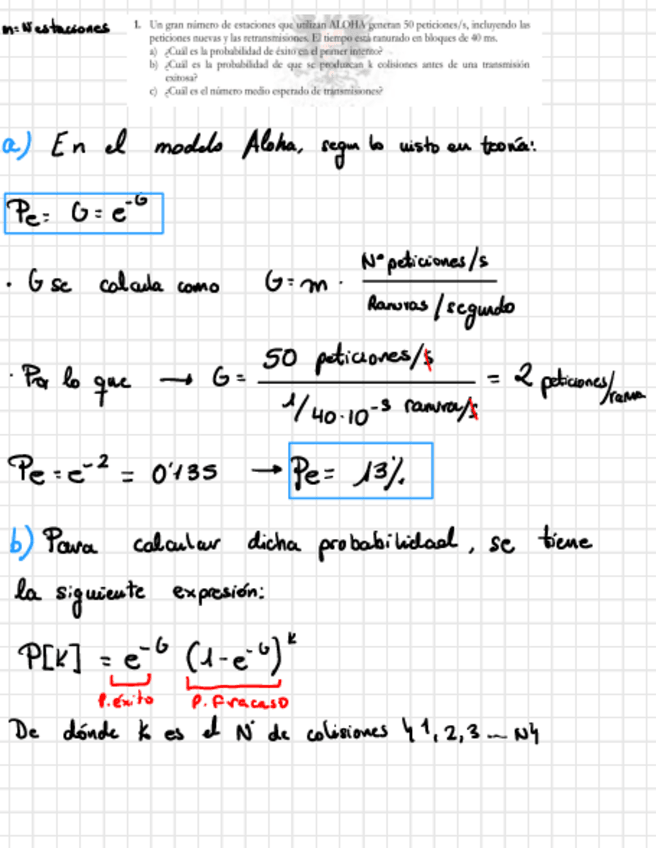 m=Nestaciones
1. Un gran número de estaciones que utilizan ALOHA generan 50 peticiones/s, incluyendo las
peticiones nuevas y las retransmisiones. El tiempo está ranurado en bloques de 40 ms.
a) ¿Cuál es la probabilidad de éxito en el primer intento?
b) ¿Cuál es la probabilidad de que se produzcan k colisiones antes de una transmisión
exitosa?
c) ¿Cuál es el número medio esperado de transmisiones?
a) En el modelo Aloha, segun lo visto en teoría:
Pe= G = e^-G
· G se calcula como G = m · Nº peticiones/s / Ranuras/segundo
· Por lo que → G = 50 peticiones/s / 1/40·10^-3 ranura/s = 2 peticiones/ranura
Pe = e^-2 = 0'135 → Pe = 13%
b) Para calcular dicha probabilidad, se tiene
la siguiente expresión:
P[K] = e^-G (1-e^-G)^k
P.éxito P. Fracaso
De dónde K es el Nº de colisiones {1, 2, 3 ... N}